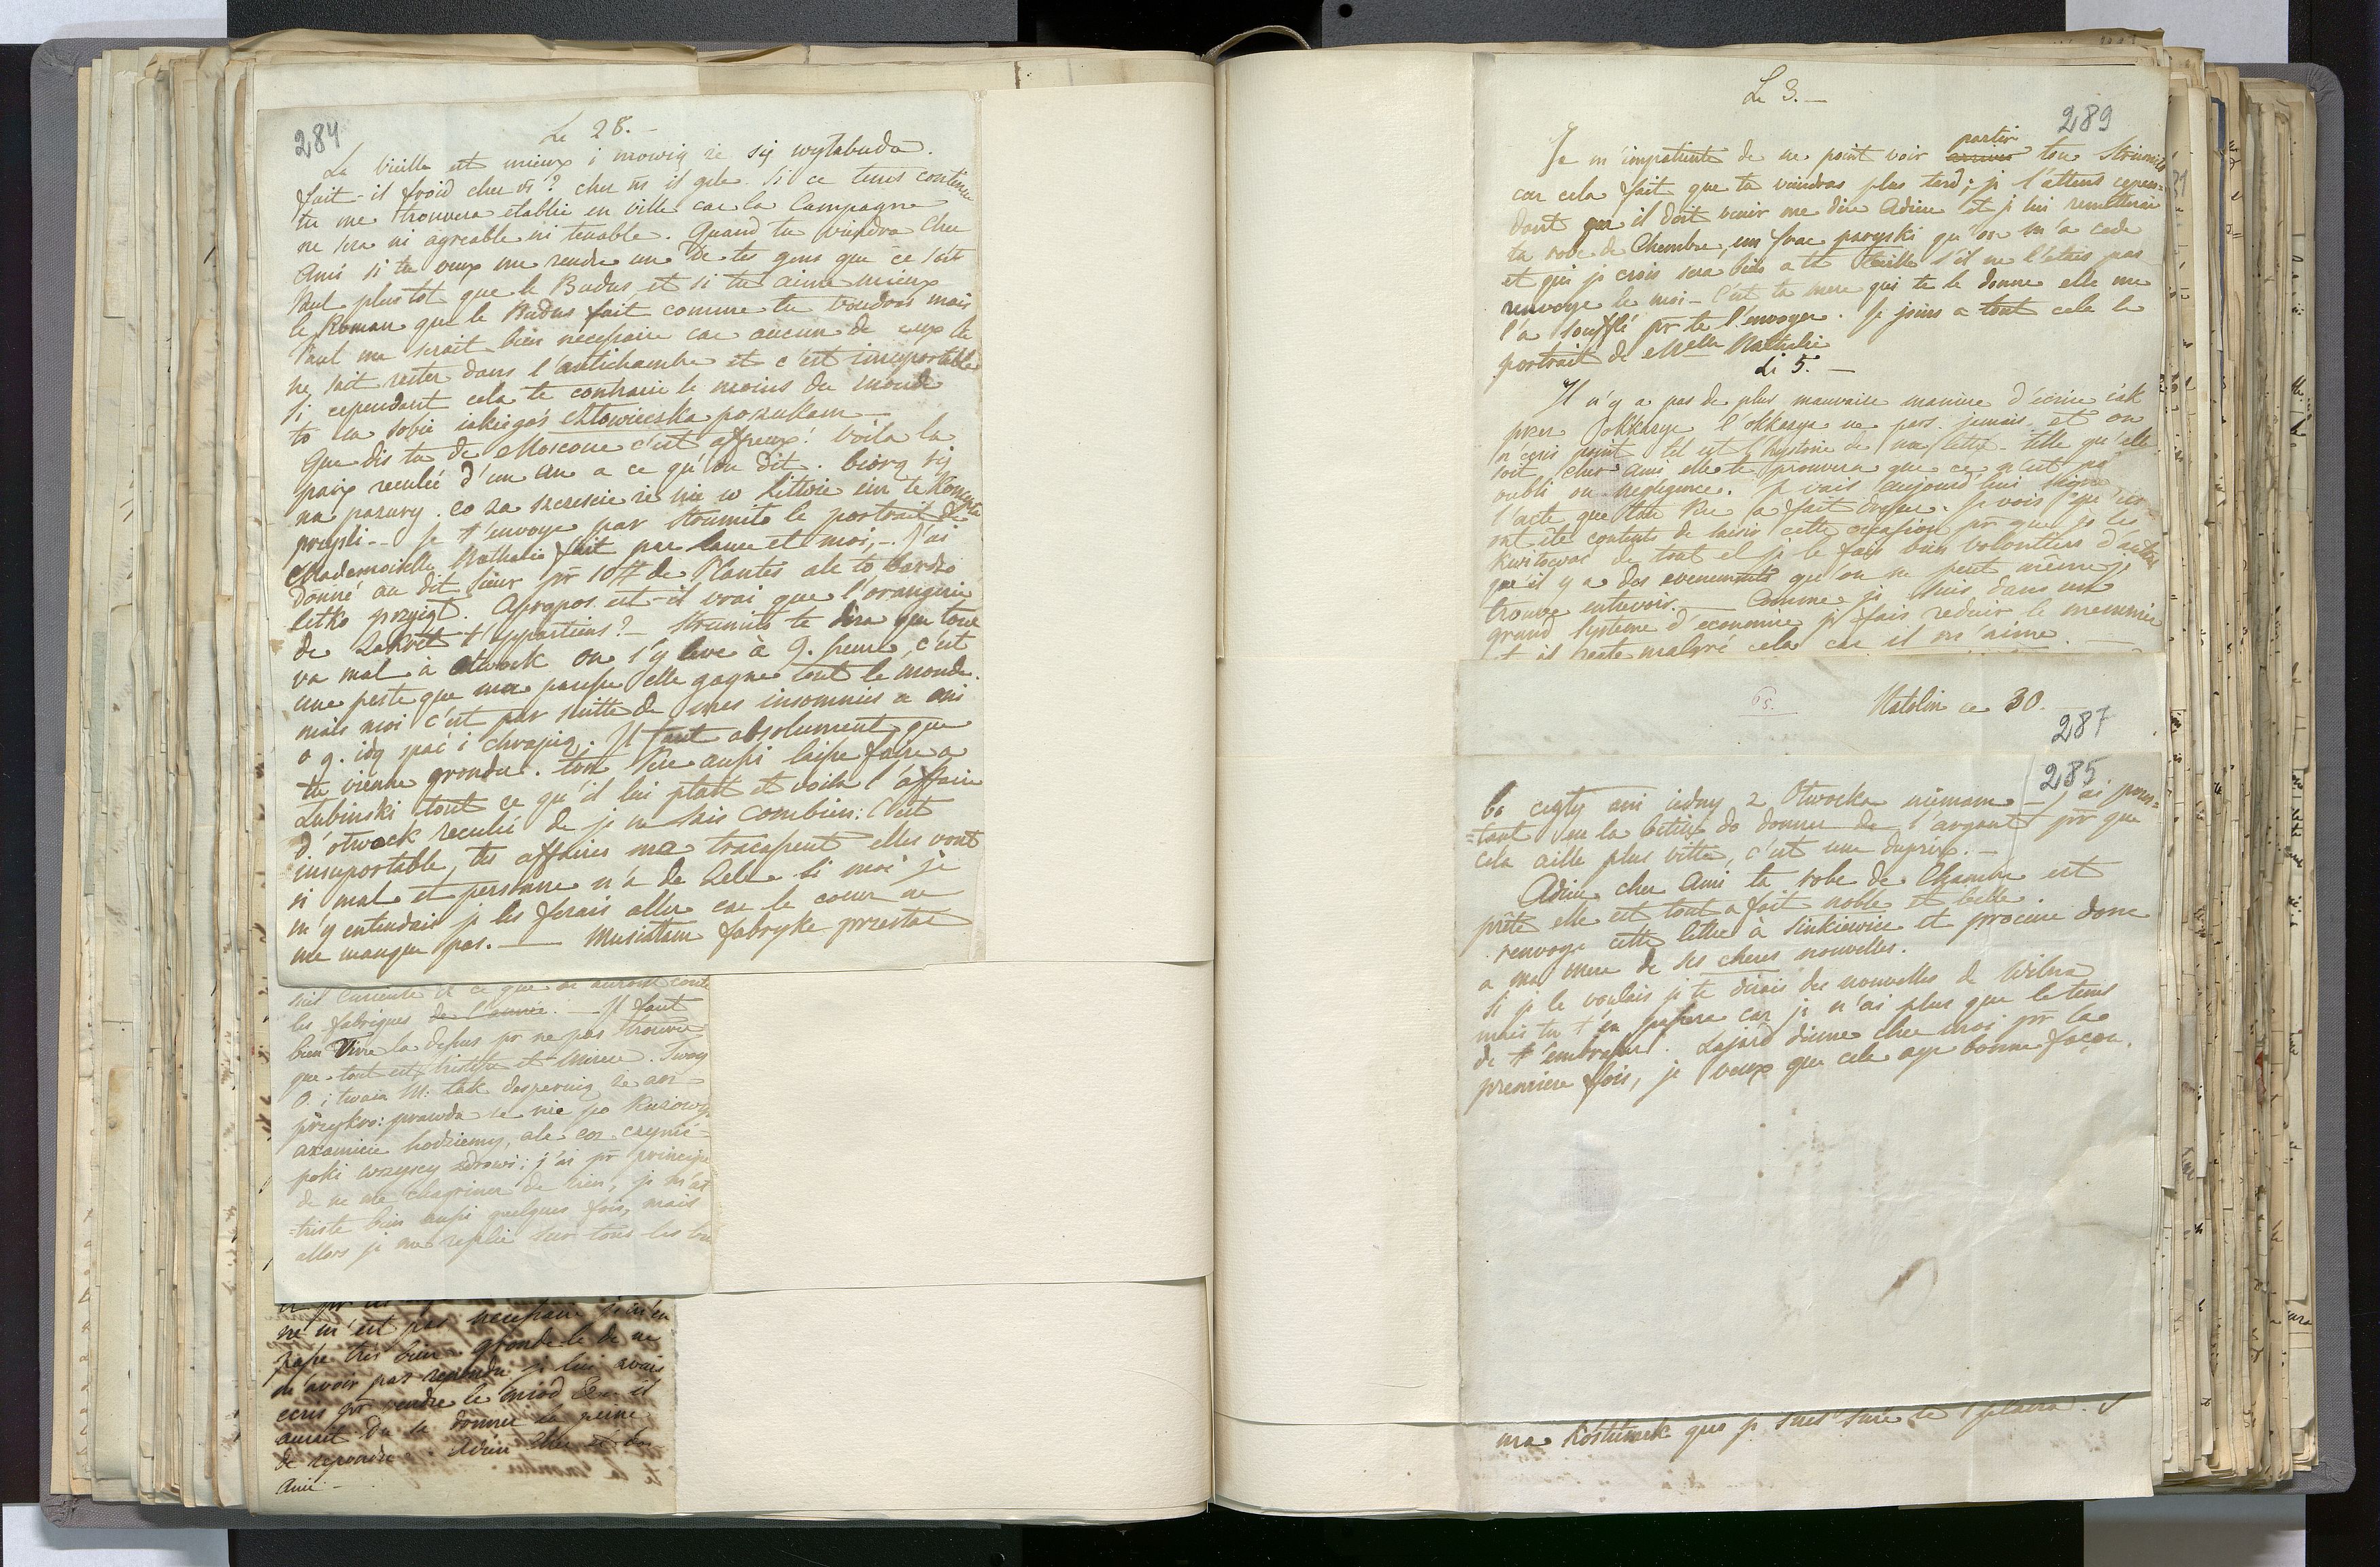 284
Le 28. -
La vieille est mieux i mowią że się wylabuda.
fait-il froid chez vs? chez ns il gele. Si ce tems continue
tu me trouvera etablie en ville car la Campagne
ne sera ni agreable ni tenable. Quand tu viendra Cher
Ami si tu veux me rendre un de tes gens que ce soit
Paul plustot que le Budus et si tu aime mieux
le Roman que le Budus fait comme tu voudras mais
Paul me serait bien necessaire car aucun de ceux la
ne sait rester dans l'antichambre et c'est insuportable
si cependant cela te contrarie le moins du monde
to tu sobie iakiegoś człowieczka poszukam -
Que dis tu de Moscoue c'est affreux! voila la
paix reculée d'un an a ce qu'on dit. biorą się
na pazury. co za szczescie że nie w Littwie im te Koncepta
przyszli -- Je t'envoye par Strumiło le portrait de
Mademoiselle Nathalie fait par Laure et moi, - J'ai
donné au dit Sieur pr 10 # de Plantes ale to bardzo
letko przyiął. Apropos est-il vrai que l'orangerie
de Zakret t'appartiens? - Strumiło te dira que tout
va mal à Otwock on s'y leve à 9. heures, c'est
une peste que ma paresse elle gagne tout le monde.
mais moi c'est par suitte de mes insomnies a oni
o 9. idą spać i chrapią. Il faut absolument que
tu vienne gronder. ton Pere aussi laisse faire a
Lubinski tout ce qu'il lui plait et voila l'affaire
d'otwock reculée de je ne sais combien: C'est
insuportable, tes affaires me tracassent elles vont
si mal et personne n'a de Zele si moi je
m'y entendais je les ferais aller car le coeur ne
me manque pas. — Musiałam fabrykę przestać
de ce que
les fabriques de l'année. - Il faut
bien Vivre la dessus pr ne pas trouver
que tout est tristesse et misere. Twoy
O. i twoia M: tak desperuią że aż
przykro: prawda że nie po
hodziemy, ale coz czynić -
poki wszyscy zdrowi; j'ai pr principe
de ne me chagriner de rien, je m'at
=triste bien aussi quelques fois, mais
allors je me replie sur tous les
ne m'est pas necessaire
passe tres bien gronde le de ne
m'avoir pas repondu je lui avais
ecris pr vendre le miod il
aurait du se donner la peine
de repondre. Adieu cher et bon
Ami -
Le 3. -
289
Je m'impatiente de ne point voir partir ton Strumiło
car cela fait que tu viendras plus tard; je l'attens cepen=
dant il doit venir me dire Adieu et je lui remetterai
ta robe de Chambre, un frac paryski qu'on m'a cedé
et qui je crois sera bien a ta taille s'il ne l'etais pas
renvoye le moi - C'est ta mere qui te le donne elle me
l'a soufflé pr te l'envoyer. Je joins a tout cela le
portrait de Melle Nathalie
Le 5. -
Il n'y a pas de plus mauvaise maniere d'écrire iak
przez okkazye l'okkazye ne pars jamais et on
n'ecris point tel est l'hystoire de ma lettre - telle qu'elle
soit, cher ami elle te prouvera que ce n'est pas
oubli ou negligence. Je vais aujourd'hui signer
l'acte que ton Pere a fait dresser. Je vois que
ont été contents de saisir cette occasion pr que je les
kwitować de tout et je le fais bien volontiers d'autant
qu'il y a des evenements qu'on ne peut meme
trouver entrevoir. — Comme je suis dans un
grand systeme d'economie je fais reduir le menuisier
et il reste malgré cela car il m'aime. —
Natolin ce 30.
287
285
bo cegły ani iedny z Otwocka niemam - j'ai pour=
=tant eu la betise de donner de l'argent pr que
cela aille plus vitte, c'est une duperie. -
Adieu cher Ami ta robe de Chambre est
prête elle est tout a fait noble et belle.
renvoye cette lettre à Sinkiewicz et procure donc
a ma mere de ses cheres nouvelles.
Si je le voulais je te dirais des nouvelles de Wilna
mais tu t'en passera car je n'ai plus que le tems
de t'embrasser. Lajard dinne chez moi pr la
premiere fois, je veux que cela aye bonne façon.
ma que je suis sure te plaira.